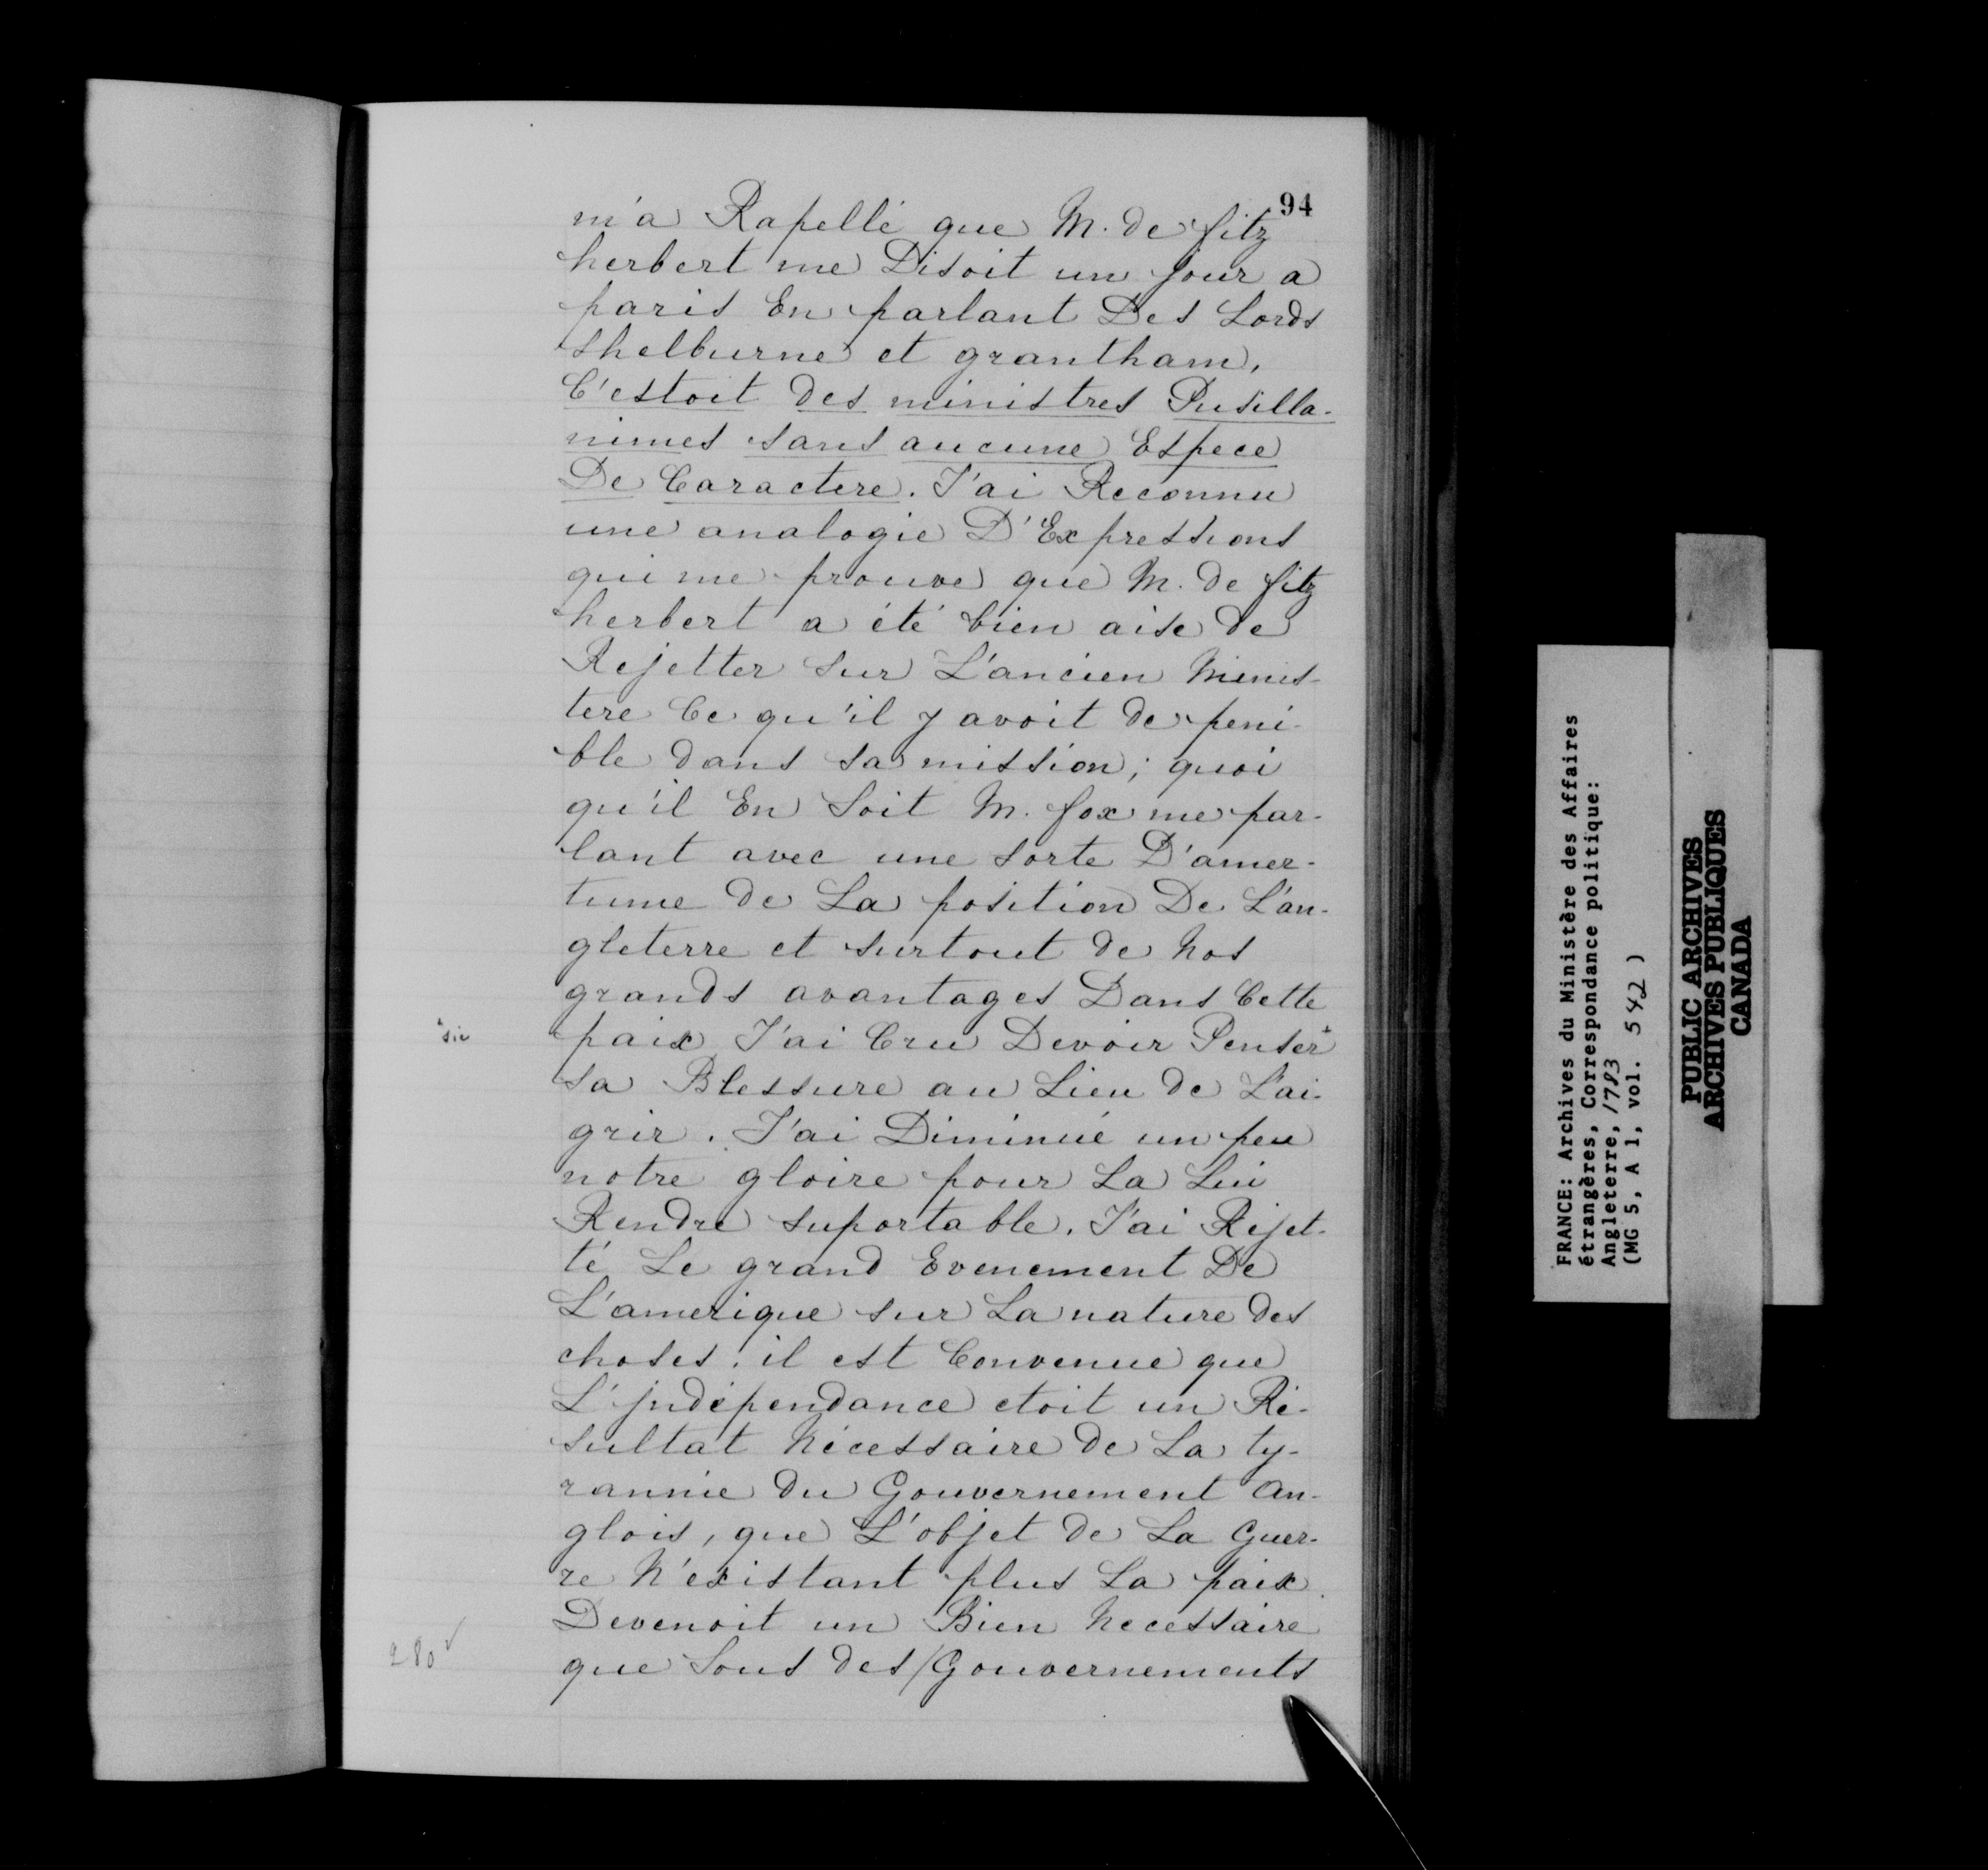 94
m'a Rapellé que M. de fitz
herbert me Disoit un jour a
paris En parlant Des Lords
shelburne et grantham,
C'estoit des ministres Pusilla-
nimes sans aucune Espece
De Caractere. J'ai Reconnu
une analogie D'Expressions
qui me prouve que M. de fitz
herbert a été bien aise de
Rejetter sur L'ancien Minis-
tere Ce qu'il y avoit de peni-
ble dans sa mission; quoi
qu'il En Soit M. fox me par-
lant avec une sorte D'amer-
tume de La position De L'an-
gleterre et surtout de Nos
grands avantages Dans Cette
* sic
paix J'ai Cru Devoir Penser*
sa Blessure au Lieu de L'ai-
grir. J'ai Diminué un peu
notre gloire pour La Lui
Rendre suportable. J'ai Rejet-
té Le grand Evenement De
L'amerique sur La nature des
choses; il est Convenue que
L'jndépendance etoit un Ré-
sultat Nécessaire de La ty-
rannie du Gouvernement An-
glois, que L'objet de La Guer-
re N'existant plus La paix
Devenoit un Bien Necessaire
280 v
que Sous des/Gouvernements
FRANCE: Archives du Ministère des Affaires
étrangères, Correspondance politique:
Angleterre, 1783
(MG 5, A 1, vol. 542)
PUBLIC ARCHIVES
ARCHIVES PUBLIQUES
CANADA